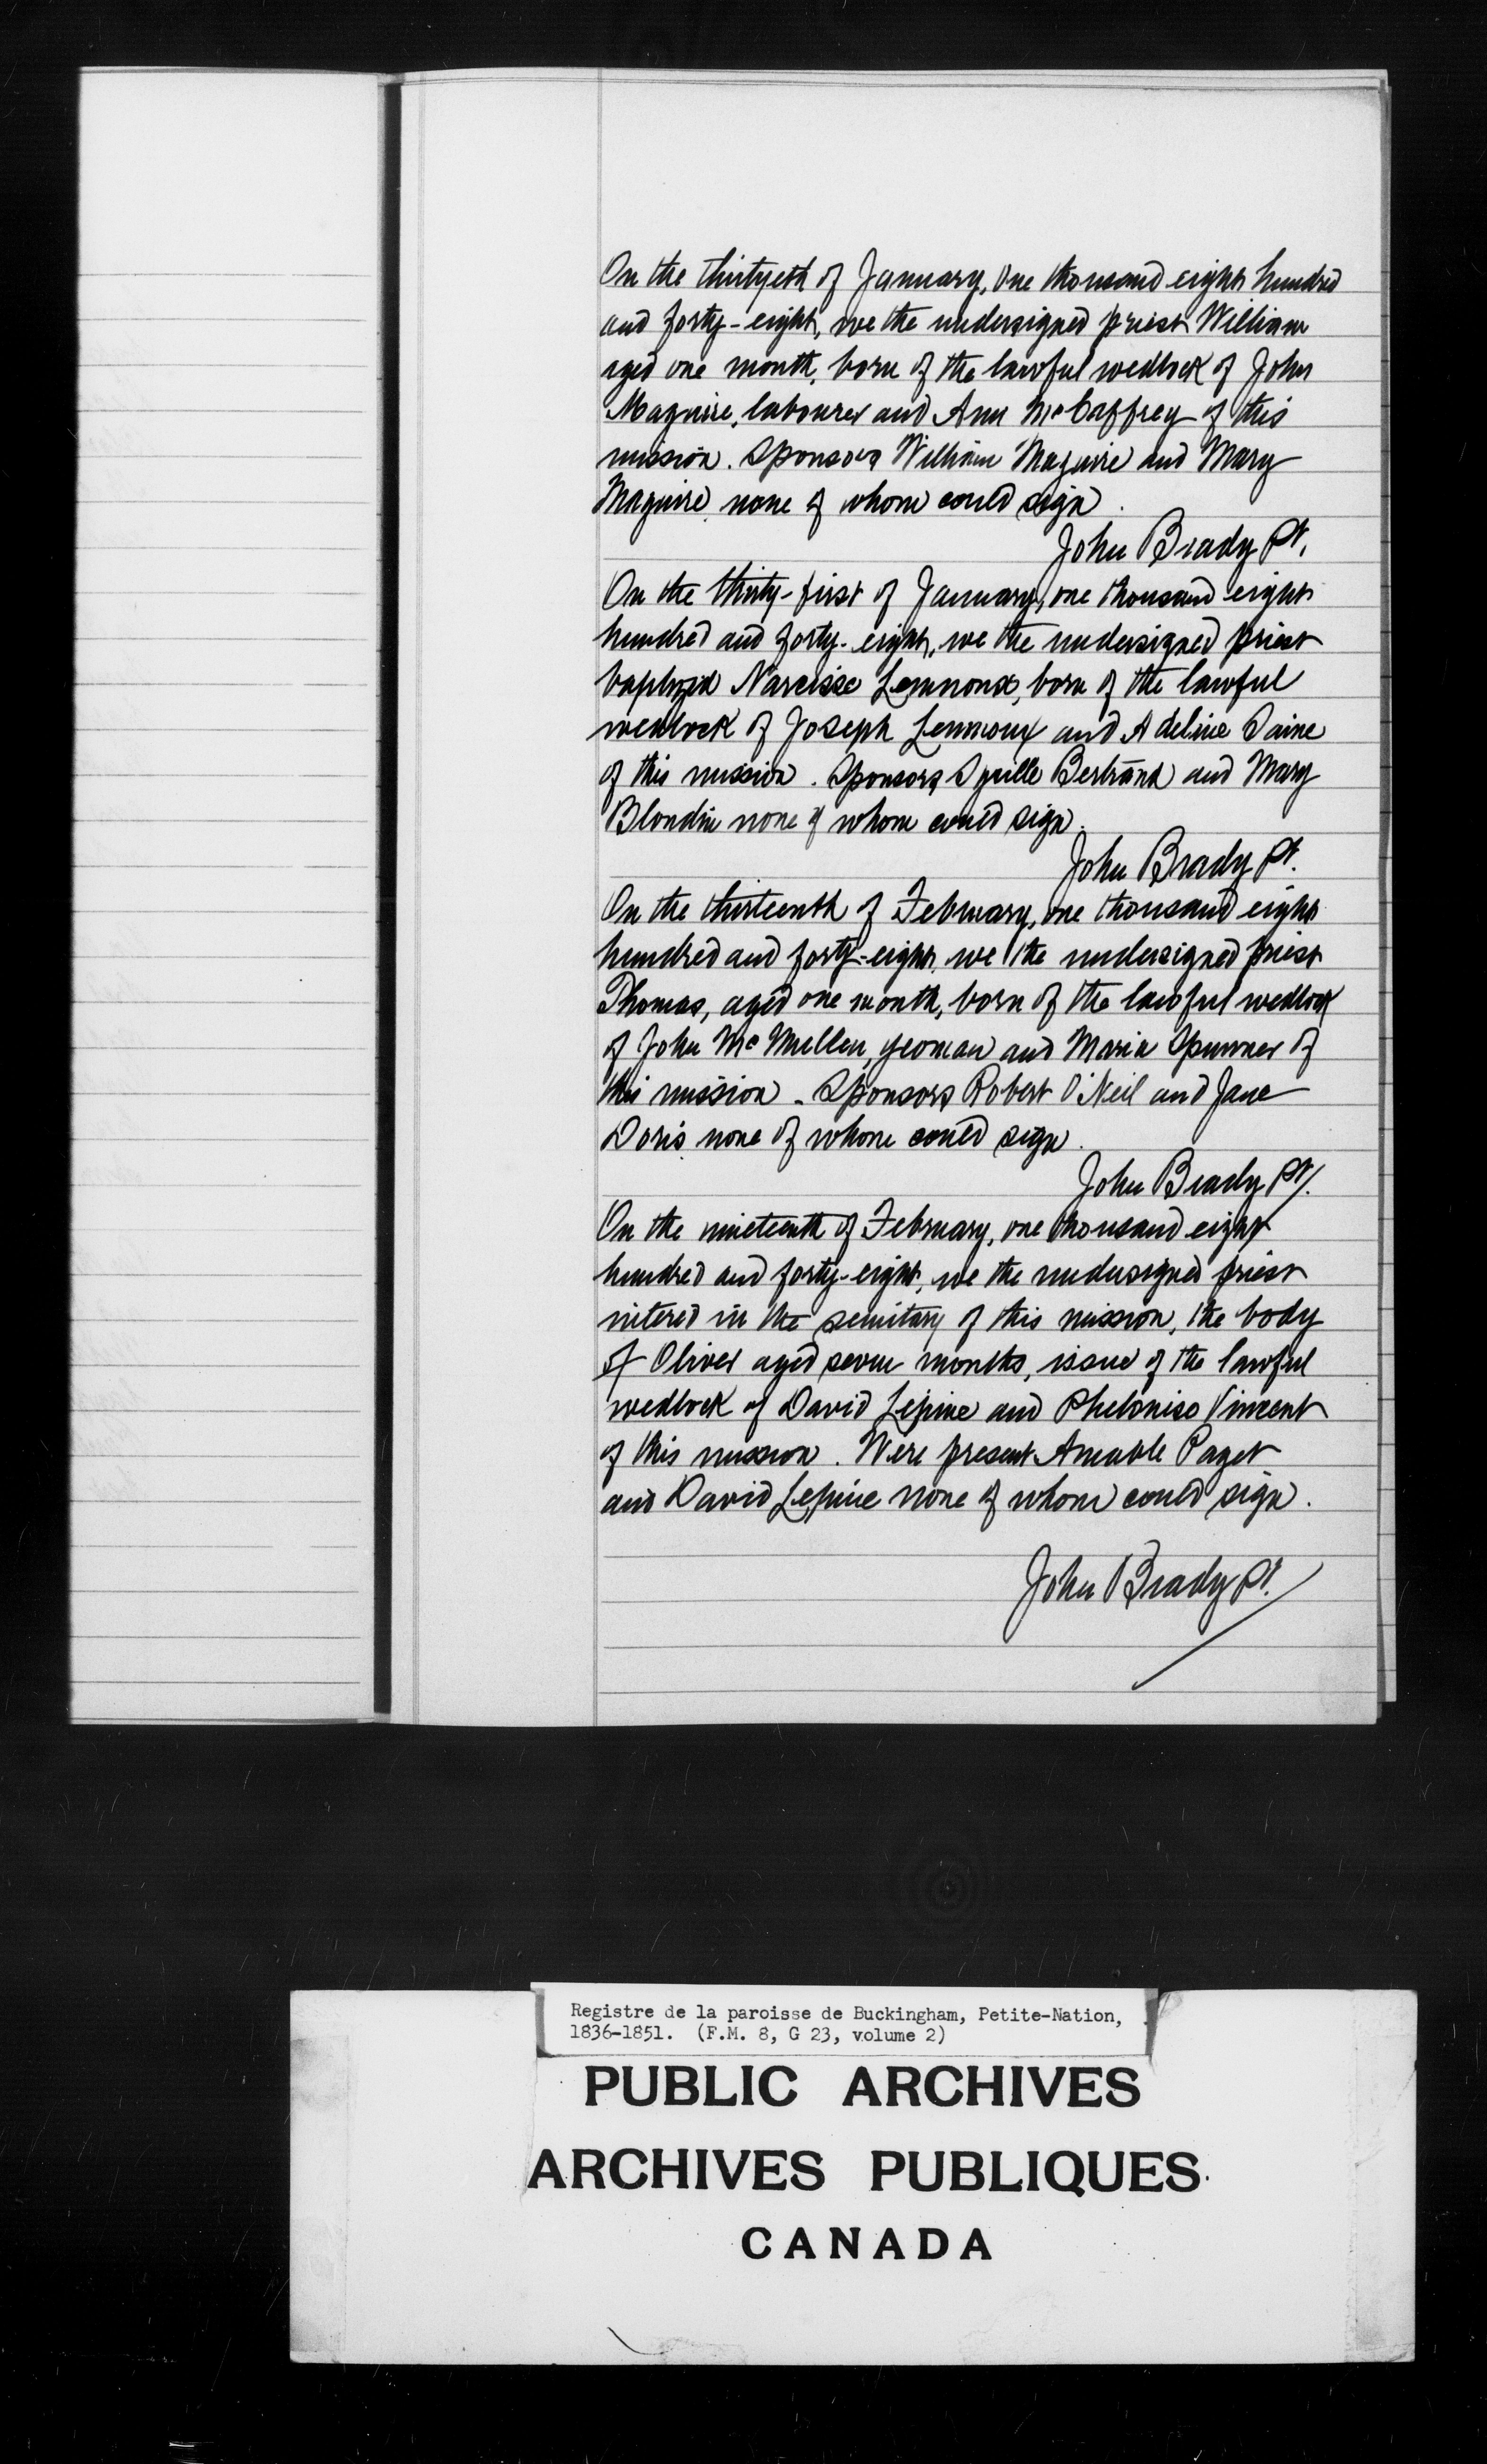 On the thirtyeth of January, one thousand eight hundred
and forty-eight, we the undersigned priest William
aged one month, born of the lawful wedlock of John
Maguire, labourer and Ann McCaffrey of this
mission. Sponsors William Maguire and Mary
Maguire none of whom could sign.
John Brady Pt.
On the thirty-first of January, one thousand eight
hundred and forty-eight, we the undersigned priest
Narcisse born of the lawful
wedlock of Joseph and Adeline
of this mission. Sponsors Bertrand and Mary
Blondin none of whom could sign.
John Brady Pt.
On the thirteenth of February, one thousand eight
hundred and forty-eight, we the undersigned priest
Thomas, aged one month, born of the lawful wedlock
of John McMullen, yeoman and Maria of
this mission. Sponsors Robert O'Neil and Jane
Doris none of whom could sign.
John Brady Pt.
On the nineteenth of February, one thousand eight
hundred and forty-eight, we the undersigned priest
intered in the semitary of this mission, the body
of Oliver aged seven months, issue of the lawful
wedlock of David Lepine and Vincent
of this mission. Were present Amable Paget
and David Lepine none of whom could sign.
John Brady Pt.
Registre de la paroisse de Buckingham, Petite-Nation,
1836-1851. (F.M. 8, G 23, volume 2)
PUBLIC ARCHIVES
ARCHIVES PUBLIQUES
CANADA